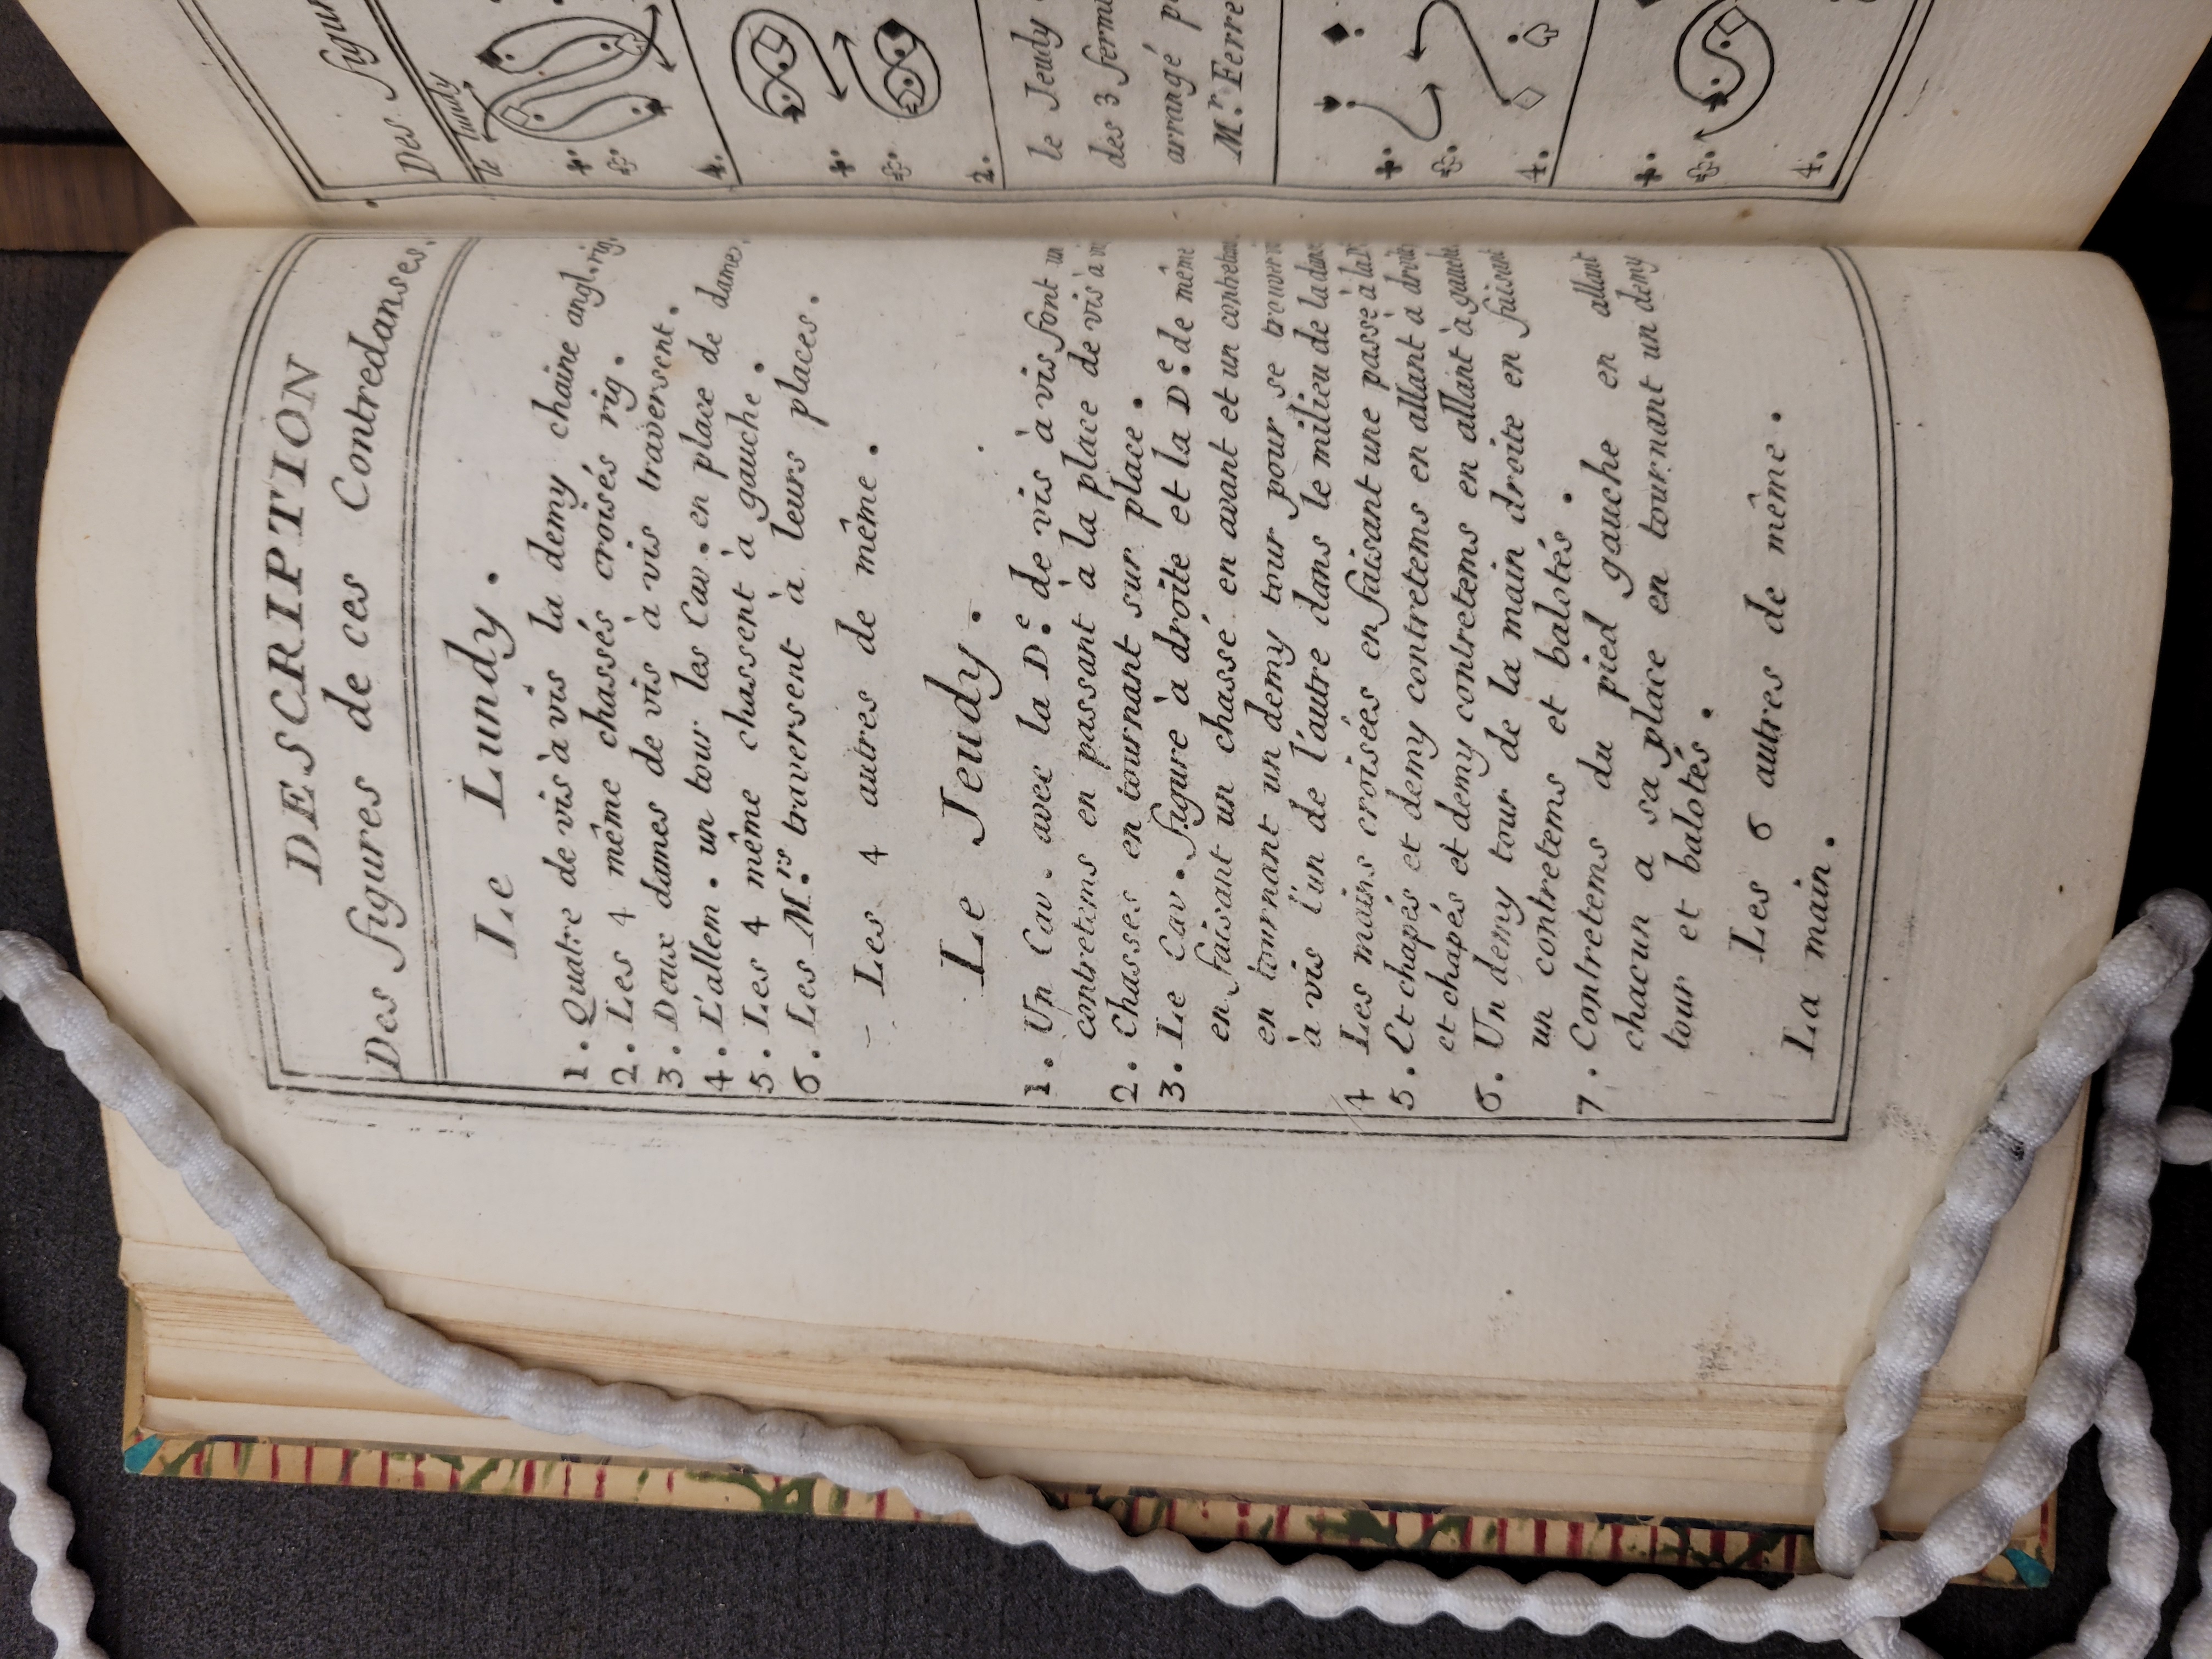 DESCRIPTION
Des figures de ces Contredanses.
Le Lundy.
1. Quatre de vis à vis la demy chaine angl. rig.
2. Les 4 même chassés croisés rig.
3. Deux dames de vis à vis traversent.
4. L'allem. un tour les Cav. en place de dames,
5. Les 4 même chassent à gauche.
6. Les M.rs traversent à leurs places.
Les 4 autres de même.
Le Jeudy.
1. Un Cav. avec la D.e de vis à vis font un
contretems en passant à la place de vis à
2. Chasses en tournant sur place.
3. Le Cav. figure à droite et la D.e de même
en faisant un chassé en avant et un
en tournant un demy tour pour se
à vis l'un de l'autre dans le milieu de la
4 Les mains croisées en faisant une passe à
5. Et chapés et demy contretems en allant à
et chapés et demy contretems en allant à gauche
6. Un demy tour de la main droite en faisant
un contretems et balotés.
7. Contretems du pied gauche en allant
chacun a sa place en tournant un demy
tour et balotés.
Les 6 autres de même.
La main.
Des figur
le lundy
4.
2.
le Jeudy
des 3 fermi
arrangé
M.r Ferre
4.
4.